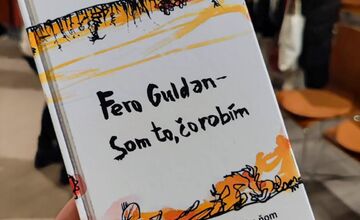 Fero Guldan-
Som to, čo robím